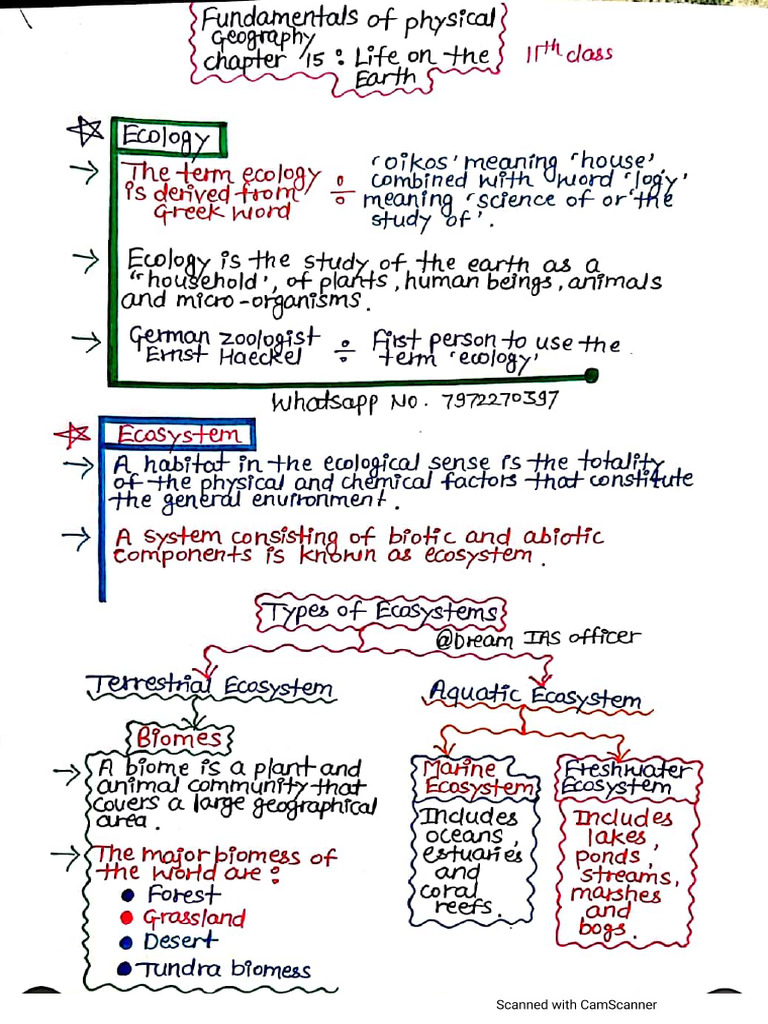 Fundamentals of physical
Geography
chapter 15 : Life on the
Earth
11th class
Ecology
→ The term ecology
is derived from
Greek word
÷
'oikos' meaning 'house'
combined with word 'logy'
meaning 'science of or 'the
study of'.
→ Ecology is the study of the earth as a
"household', of plants, human beings, animals
and micro-organisms.
→ German zoologist
Ernst Haeckel
÷
First person to use the
term 'ecology'
Whatsapp No. 7972270397
Ecosystem
→ A habitat in the ecological sense is the totality
of the physical and chemical factors that constitute
the general environment.
→ A system consisting of biotic and abiotic
components is known as ecosystem.
Types of Ecosystems
@bream IAS officer
Terrestrial Ecosystem
Biomes
→ A biome is a plant and
animal community that
covers a large geographical
area.
→ The major biomess of
the world are :
• Forest
• Grassland
• Desert
• Tundra biomess
Aquatic Ecosystem
Marine
Ecosystem
Includes
oceans,
estuaries
and
coral
reefs.
Freshwater
Ecosystem
Includes
lakes,
ponds,
streams,
marshes
and
bogs.
Scanned with CamScanner